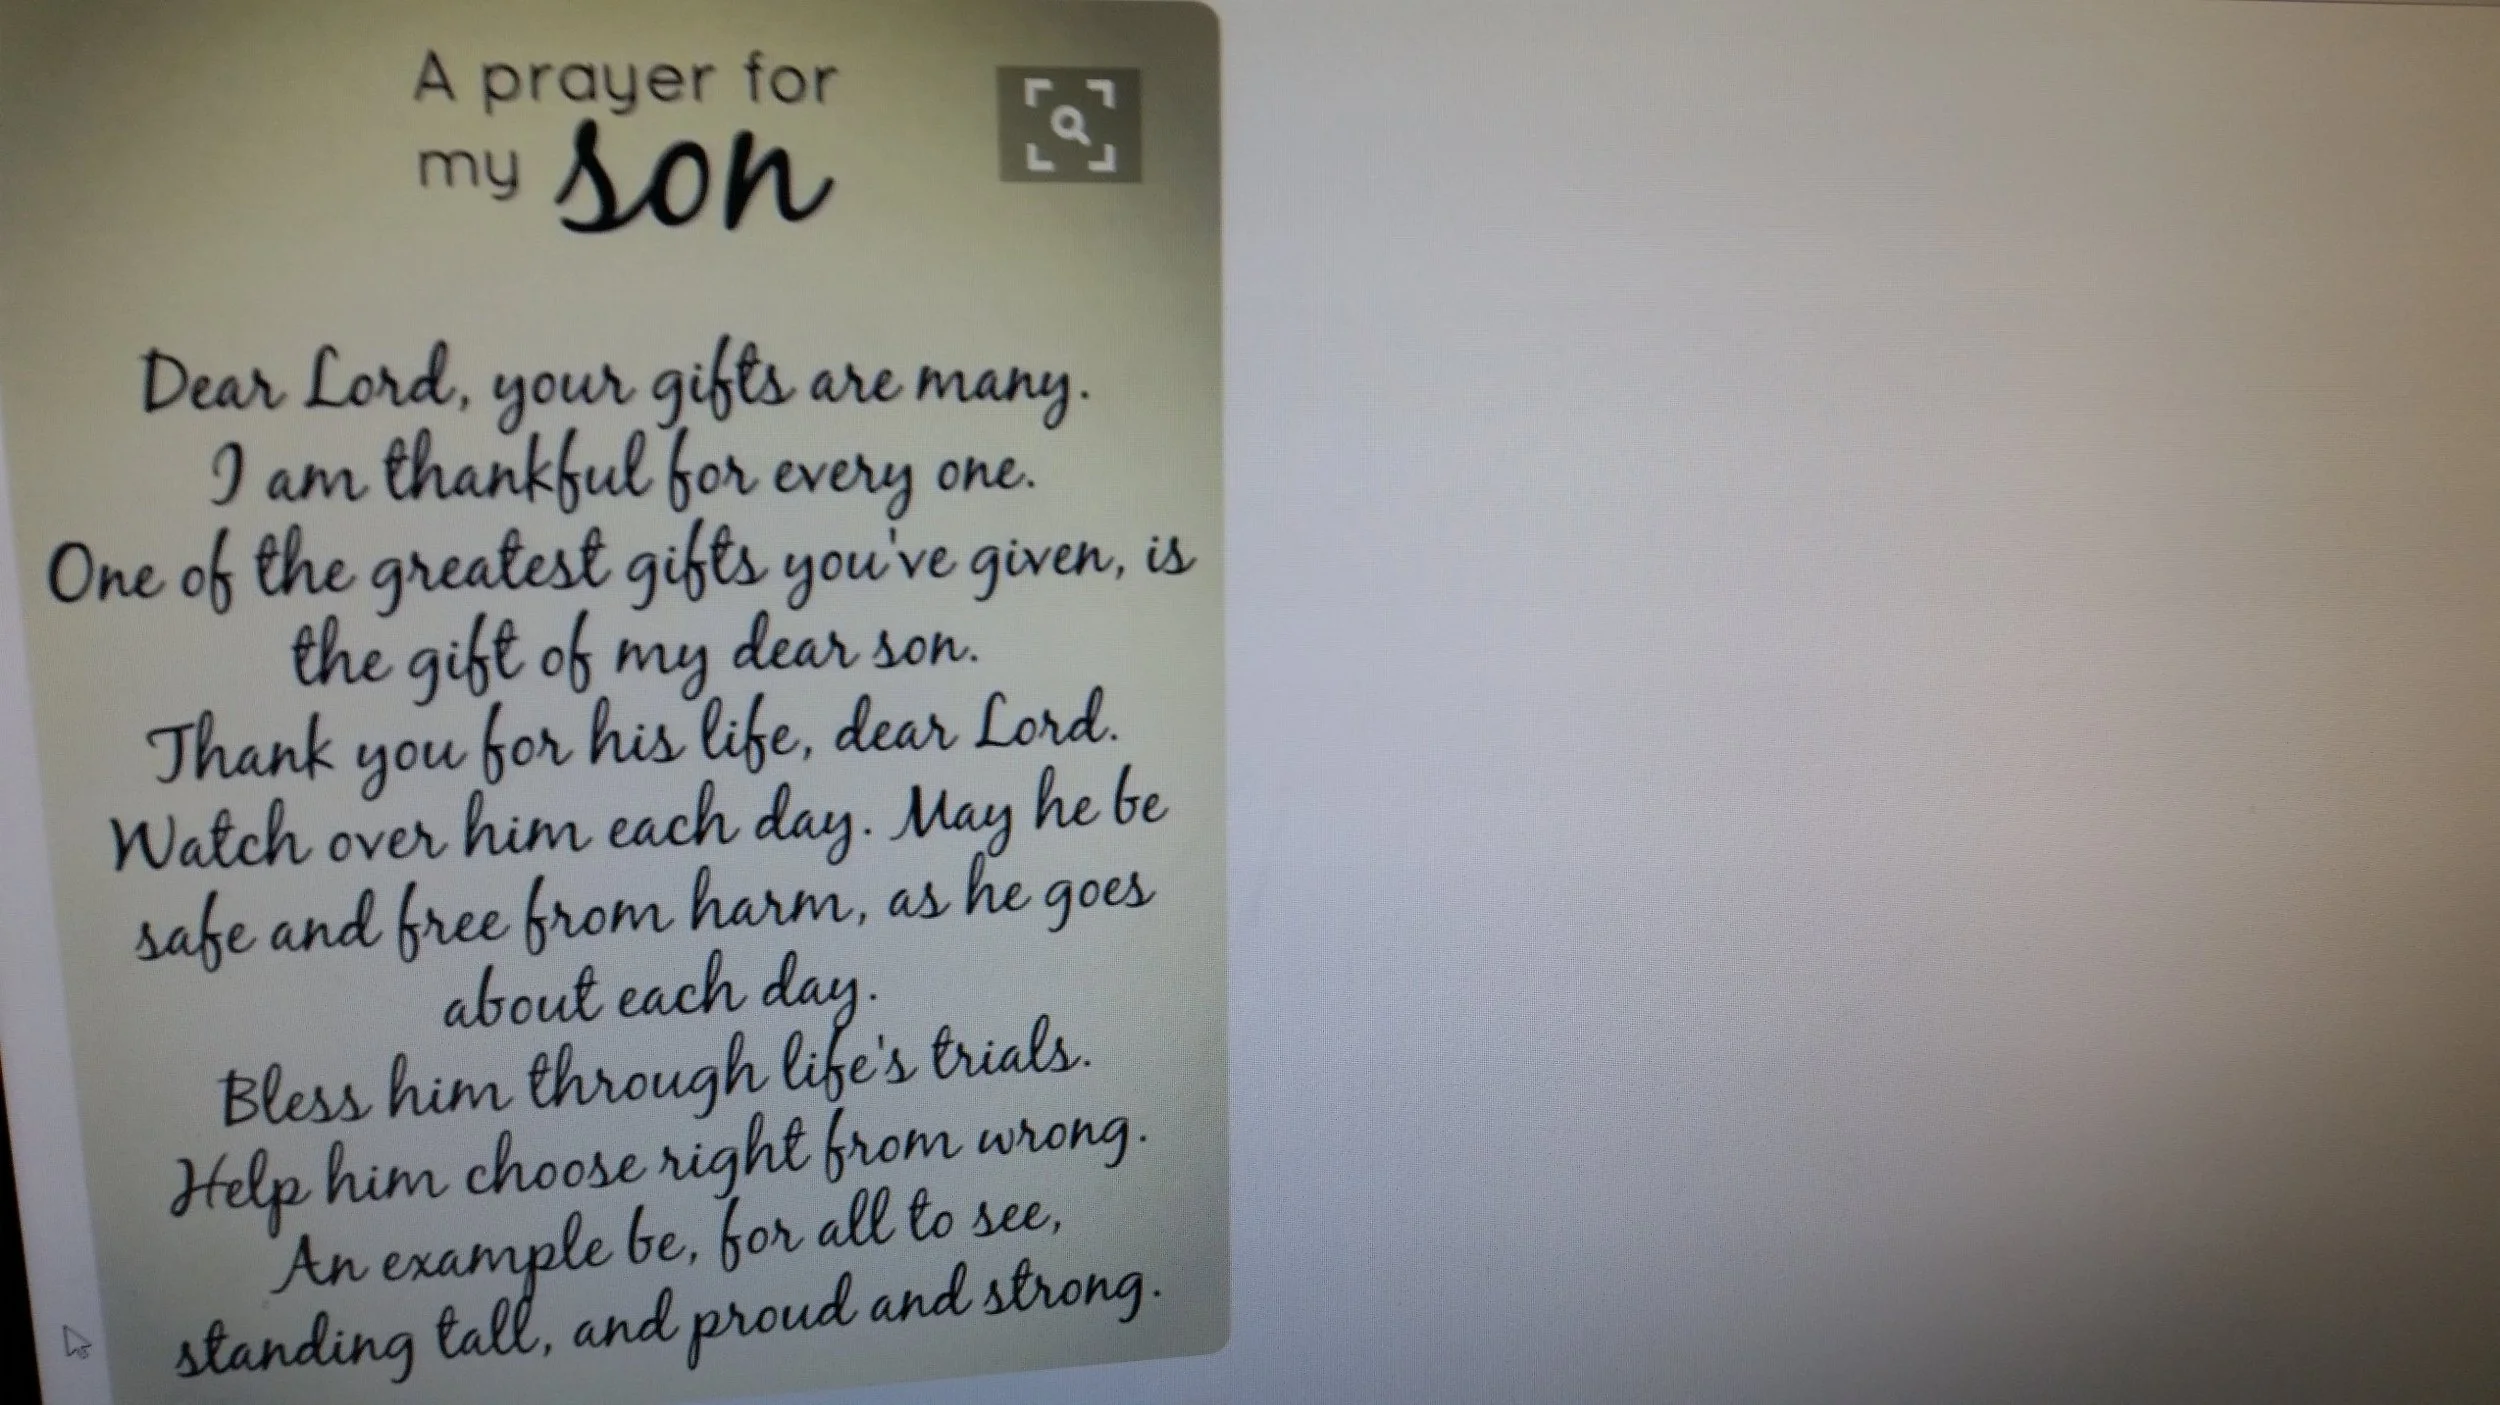 A prayer for
my son
Dear Lord, your gifts are many.
I am thankful for every one.
One of the greatest gifts you've given, is
the gift of my dear son.
Thank you for his life, dear Lord.
Watch over him each day. May he be
safe and free from harm, as he goes
about each day.
Bless him through life's trials.
Help him choose right from wrong.
An example be, for all to see,
standing tall, and proud and strong.